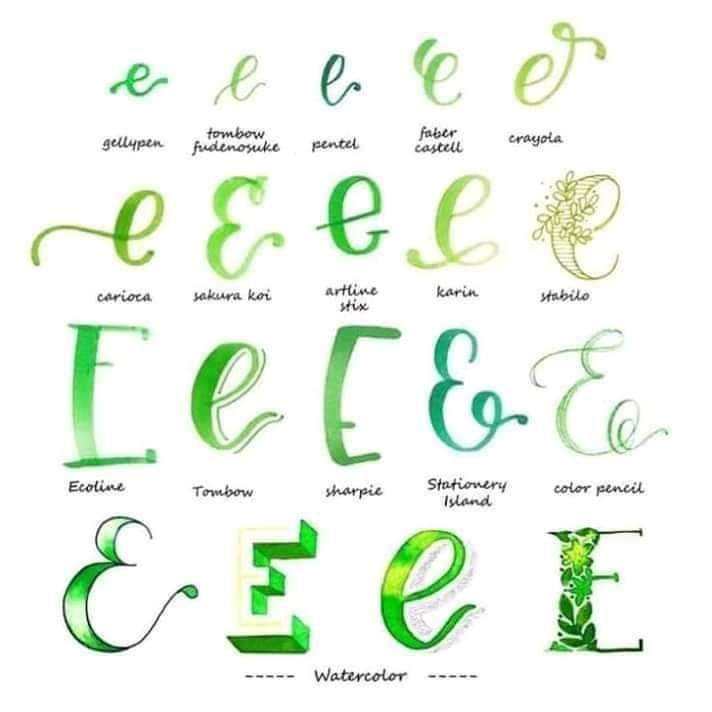 e e e e e
gellypen
tombow
fudenosuke
pentel
faber
castell
crayola
e E e e e
carioca
sakura koi
artline
stix
karin
stabilo
E e E E E
Ecoline
Tombow
sharpie
Stationery
Island
color pencil
E E e E
----- Watercolor -----